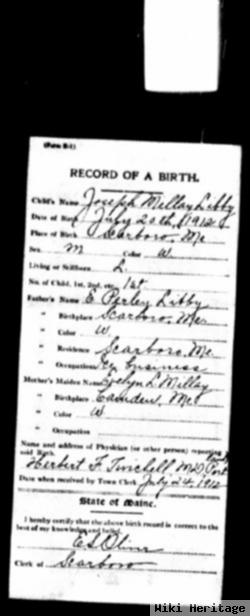 (Form B-1)
RECORD OF A BIRTH.
Child's Name Joseph Mellay Libby
Date of Birth July 20th, 1912
Place of Birth Scarboro, Me
Sex M Color W.
Living or Stillborn L.
No. of Child, 1st, 2nd, etc. 1st
Father's Name E. Perley Libby
" Birthplace Scarboro, Me.
" Color W.
" Residence Scarboro, Me.
" Occupation business
Mother's Maiden Name Evelyn L. Millay
" Birthplace Camden, Me
" Color W
" Occupation
Name and address of Physician (or other person) reporting
said Birth.
Herbert F. Twitchell M.D. Port
Date when received by Town Clerk, July 24, 1912
State of Maine.
I hereby certify that the above birth record is correct to the
best of my knowledge and belief.
Clerk of Scarboro
Wiki Heritage